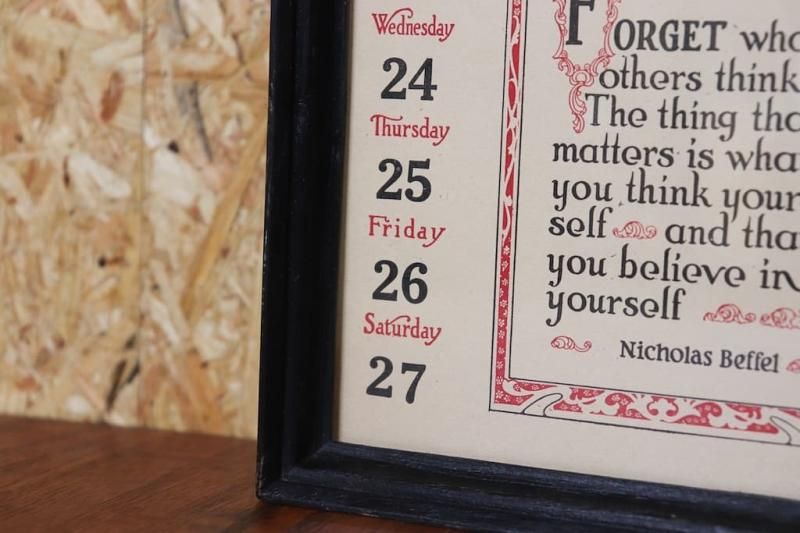 Wednesday
24
Thursday
25
Friday
26
Saturday
27
FORGET
others think
The thing
matters is
you think
self and
you believe
yourself
Nicholas Beffel